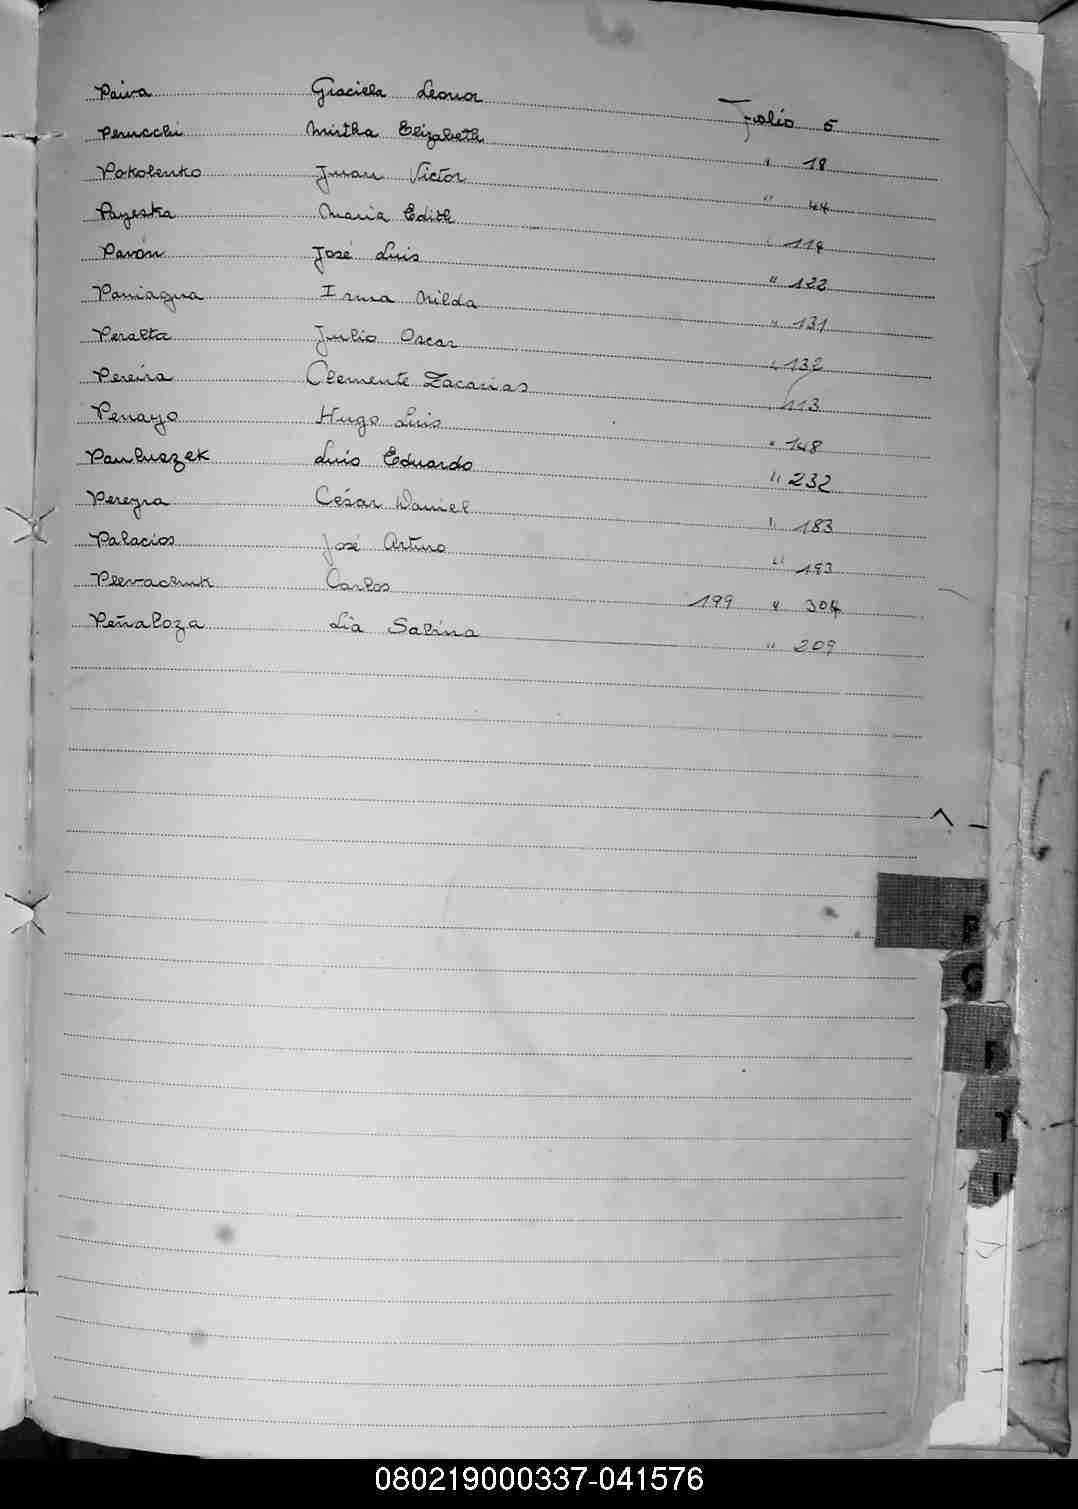 Paiva Graciela Leonor Folio 5
Perucchi Mirtha Elizabeth " 18
Pokolenko Juan Victor " 44
Payeska Maria Edith " 119
Pavón José Luis " 122
Paniagua Irma Nilda " 131
Peralta Julio Oscar " 132
Pereira Clemente Zacarias " 113
Penayo Hugo Luis " 148
Pauluszek Luis Eduardo " 232
Pereyra César Daniel " 183
Palacios José Arturo " 193
Plevachuk Carlos 199 " 304
Peñaloza Lia Sabina " 209
P
T
080219000337-041576